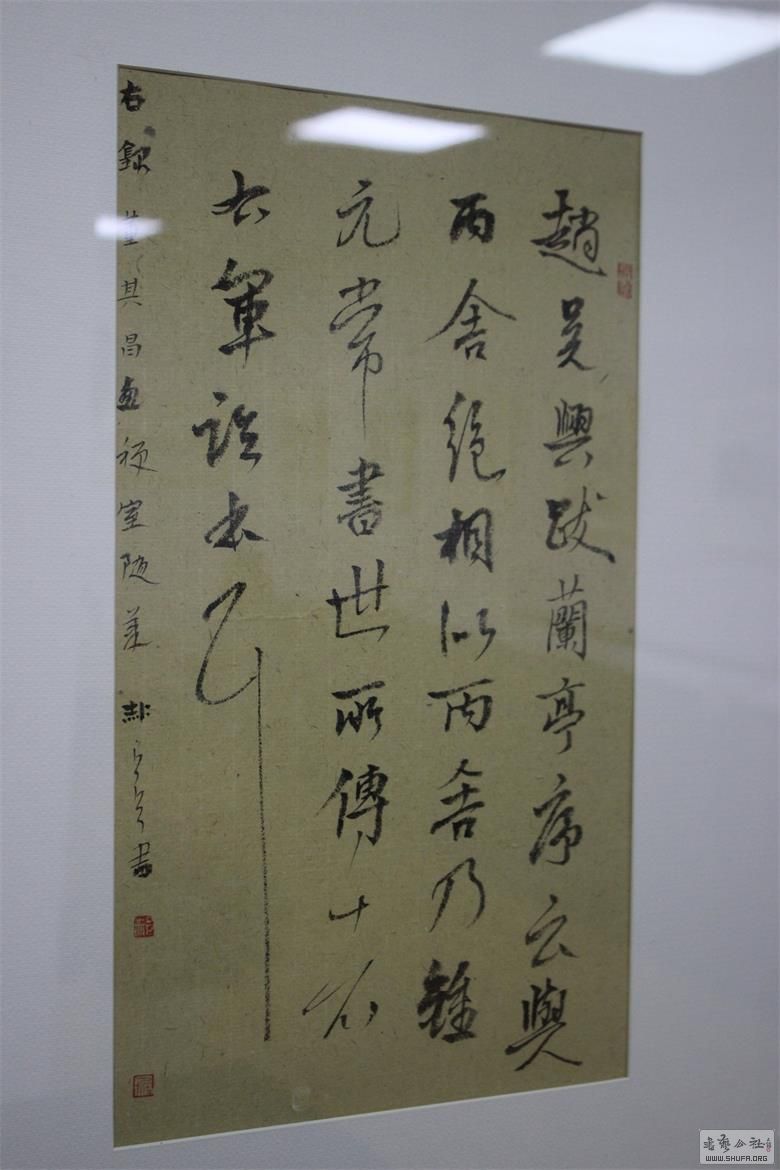 趙吳興跋蘭亭序云與
丙舍絕相似丙舍乃鍾
元常書世所傳者
右軍臨本耳
右錄董其昌畫禪室隨筆 書
WWW.SHUFA.ORG